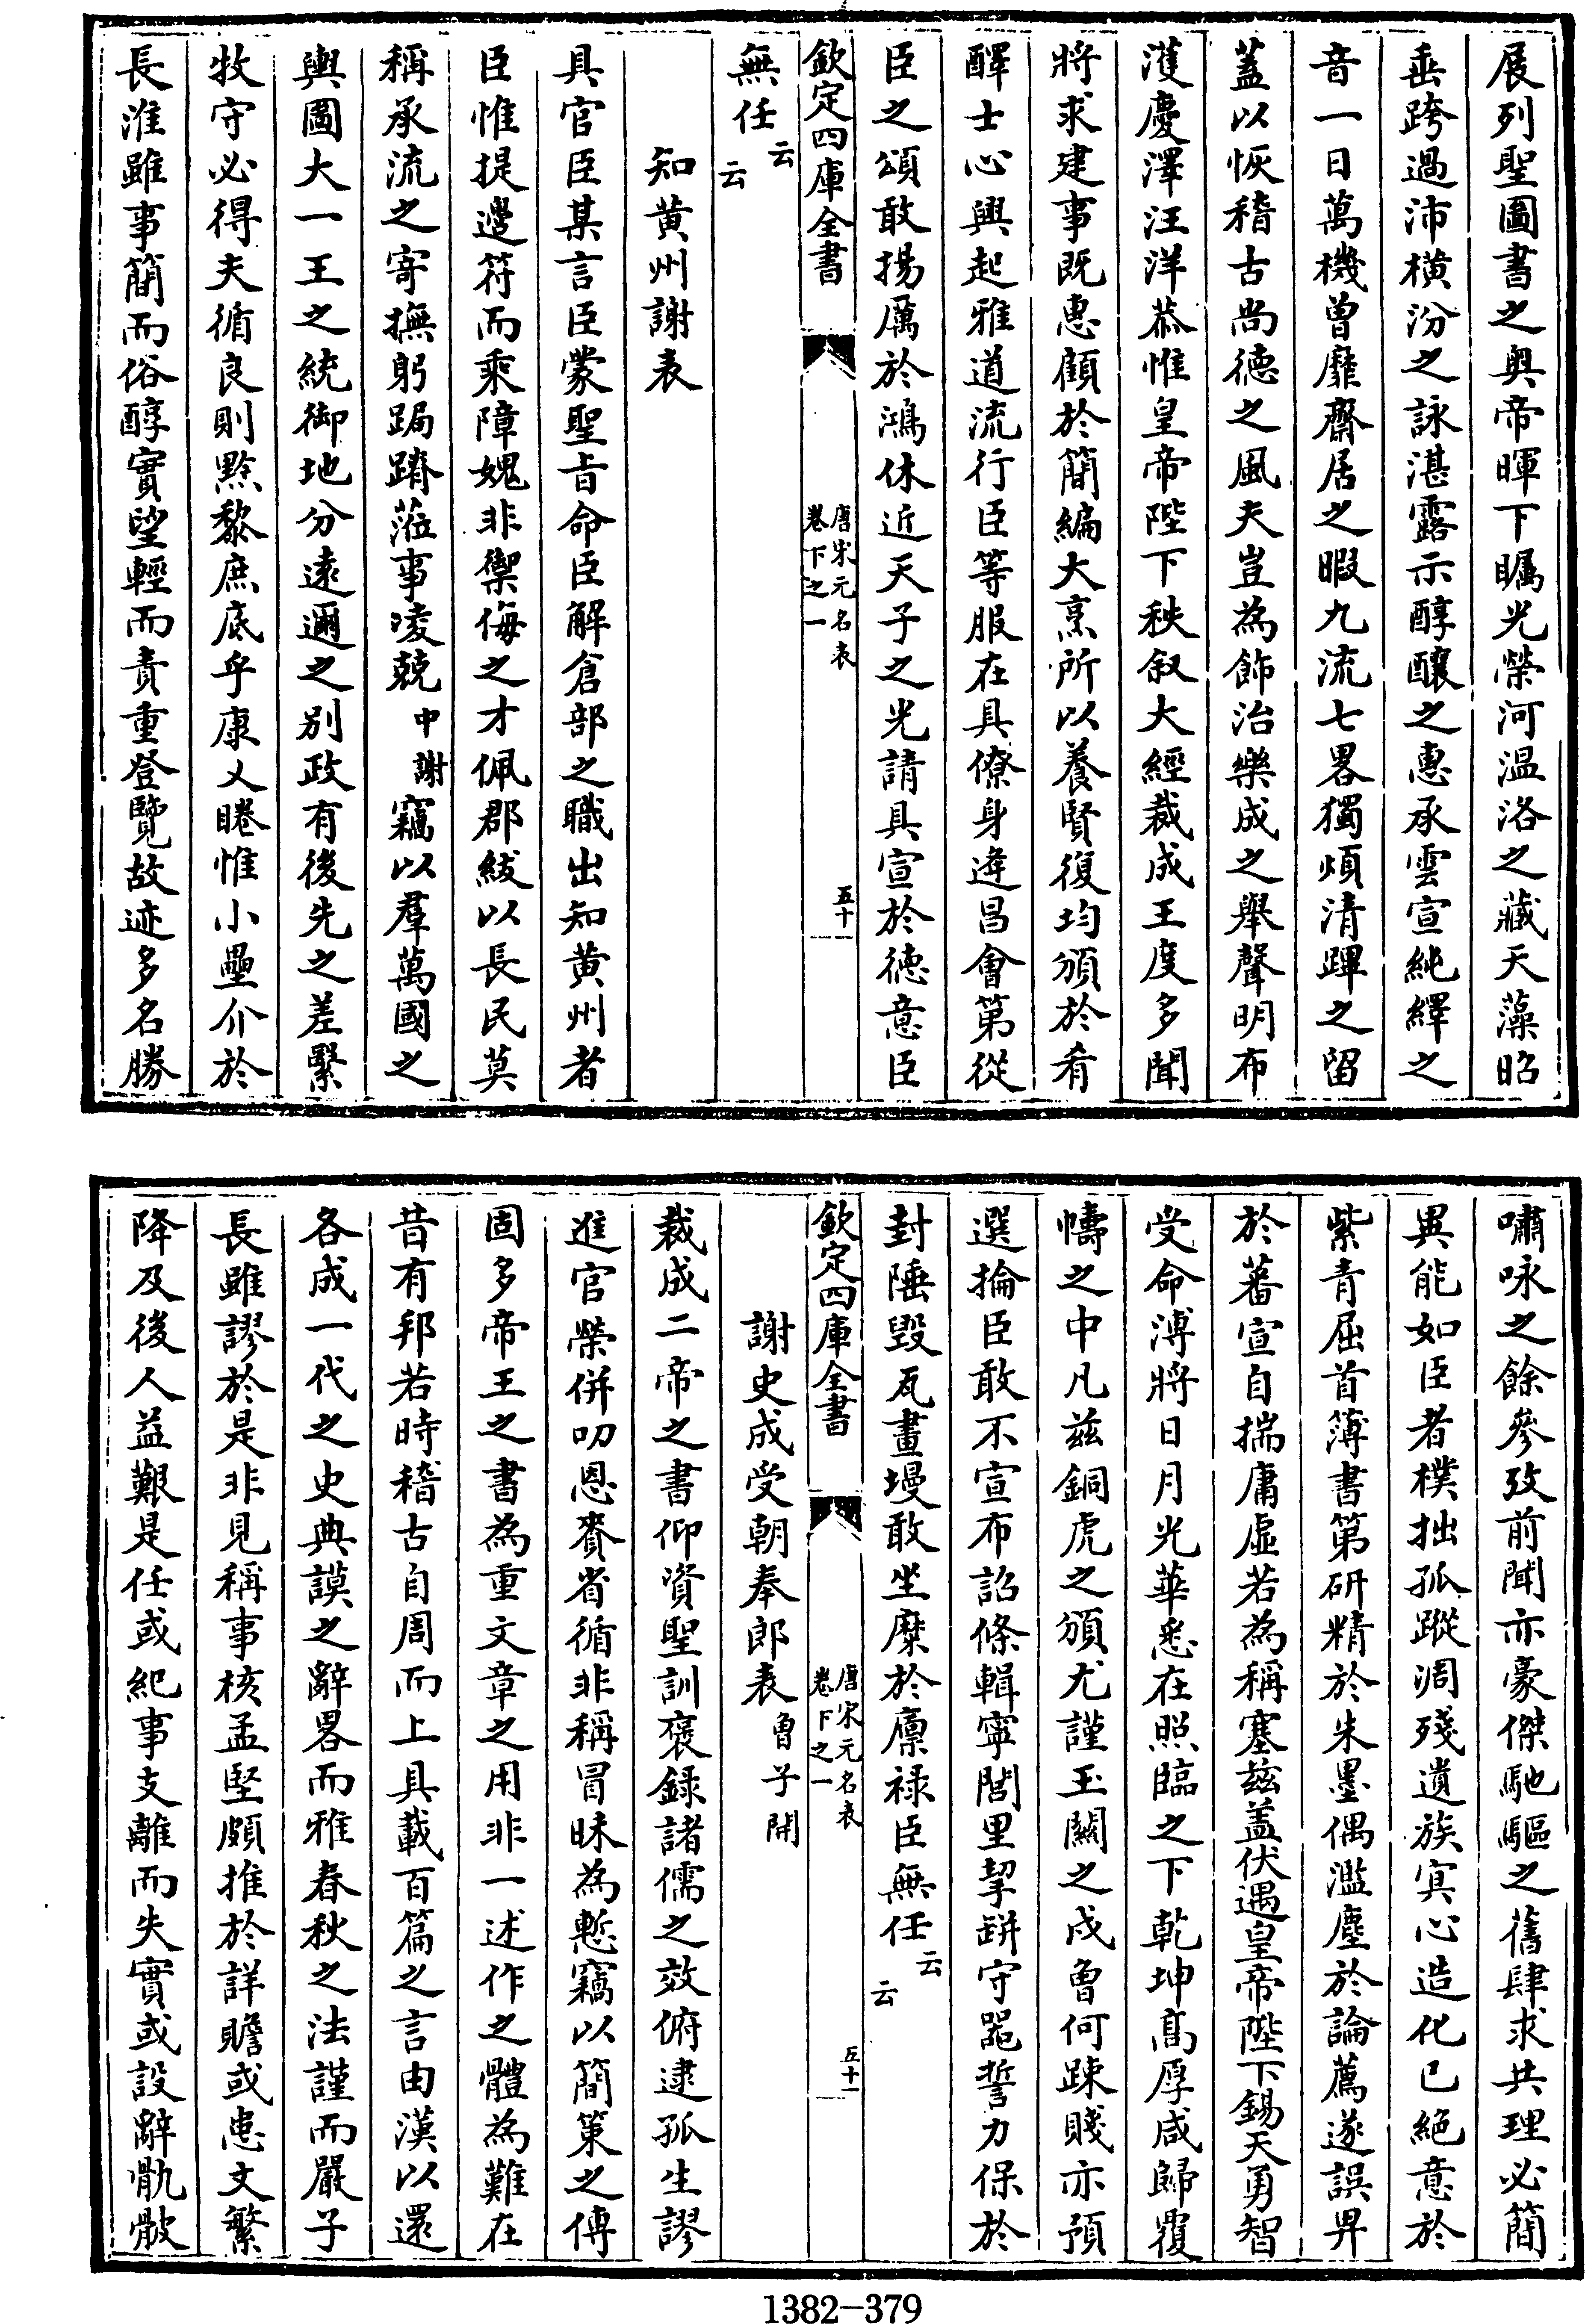 展列聖圖書之奥帝暉下矚光榮河温洛之藏天藻昭
垂跨過沛横汾之詠湛露示醇釀之惠承雲宣純繹之
音一日萬機曽靡齋居之暇九流七畧獨煩清蹕之留
蓋以恢稽古尚徳之風夫豈為飾治樂成之舉聲明布
濩慶澤汪洋恭惟皇帝陛下秩叙大經裁成王度多聞
將求建事既惠顧於簡編大烹所以養賢復均頒於肴
醳士心興起雅道流行臣等服在具僚身逢昌會第從
臣之頌敢揚厲於鴻休近天子之光請具宣於徳意臣
欽定四庫全書
唐宋元名表
卷下之一
五十
無任云云
知黄州謝表
具官臣某言臣蒙聖旨命臣解倉部之職出知黄州者
臣惟提邊符而乘障媿非禦侮之才佩郡紱以長民莫
稱承流之寄撫躬跼蹐涖事凌兢中謝竊以羣萬國之
輿圖大一王之統御地分逺邇之别政有後先之差繄
牧守必得夫循良則黔黎庶底乎康乂睠惟小壘介於
長淮雖事簡而俗醇實望輕而責重登覽故迹多名勝
嘯咏之餘參攷前聞亦豪傑馳驅之舊肆求共理必簡
異能如臣者樸拙孤蹤凋殘遺族寘心造化已絶意於
紫青屈首簿書第研精於朱墨偶濫塵於論薦遂誤畀
於蕃宣自揣庸虛若為稱塞兹蓋伏遇皇帝陛下錫天勇智
受命溥將日月光華悉在照臨之下乾坤髙厚咸歸覆
幬之中凡兹銅虎之頒尤謹玉關之戍曽何踈賤亦預
選掄臣敢不宣布詔條輯寧閭里挈缾守噐誓力保於
封陲毁瓦畫墁敢坐糜於廪禄臣無任云云
欽定四庫全書
唐宋元名表
卷下之一
五十一
謝史成受朝奉郎表曽子開
裁成二帝之書仰資聖訓褒録諸儒之效俯逮孤生謬
進官榮併叨恩賚省循非稱冒昧為慙竊以簡策之傳
固多帝王之書為重文章之用非一述作之體為難在
昔有邦若時稽古自周而上具載百篇之言由漢以還
各成一代之史典謨之辭畧而雅春秋之法謹而嚴子
長雖謬於是非見稱事核孟堅頗推於詳贍或患文繁
降及後人益艱是任或紀事支離而失實或設辭骫骳
1382-379